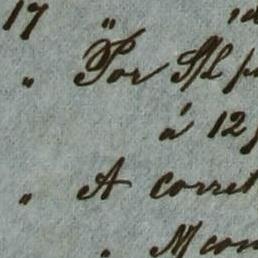 17 "
" Por S/L
á 12
" A corret
" M con